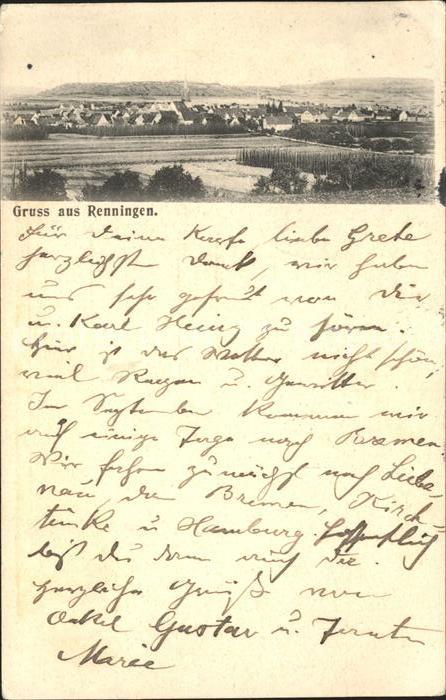 Gruss aus Renningen.
Für deine Karte, liebe Grete
herzlichsten Dank, wir haben
uns sehr gefreut von dir
u. Karl Heinz zu hören.
Hier ist das Wetter nicht schön,
viel Regen u. Gewitter.
Im September kommen wir
auf einige Tage nach Bremen.
Wir fahren zunächst nach Liebe-
nau, dann Bremen, Kirch-
u. Hamburg. Hoffentlich
bist du dann auch da.
Herzliche Grüße von
Onkel Gustav u. Tante
Marie